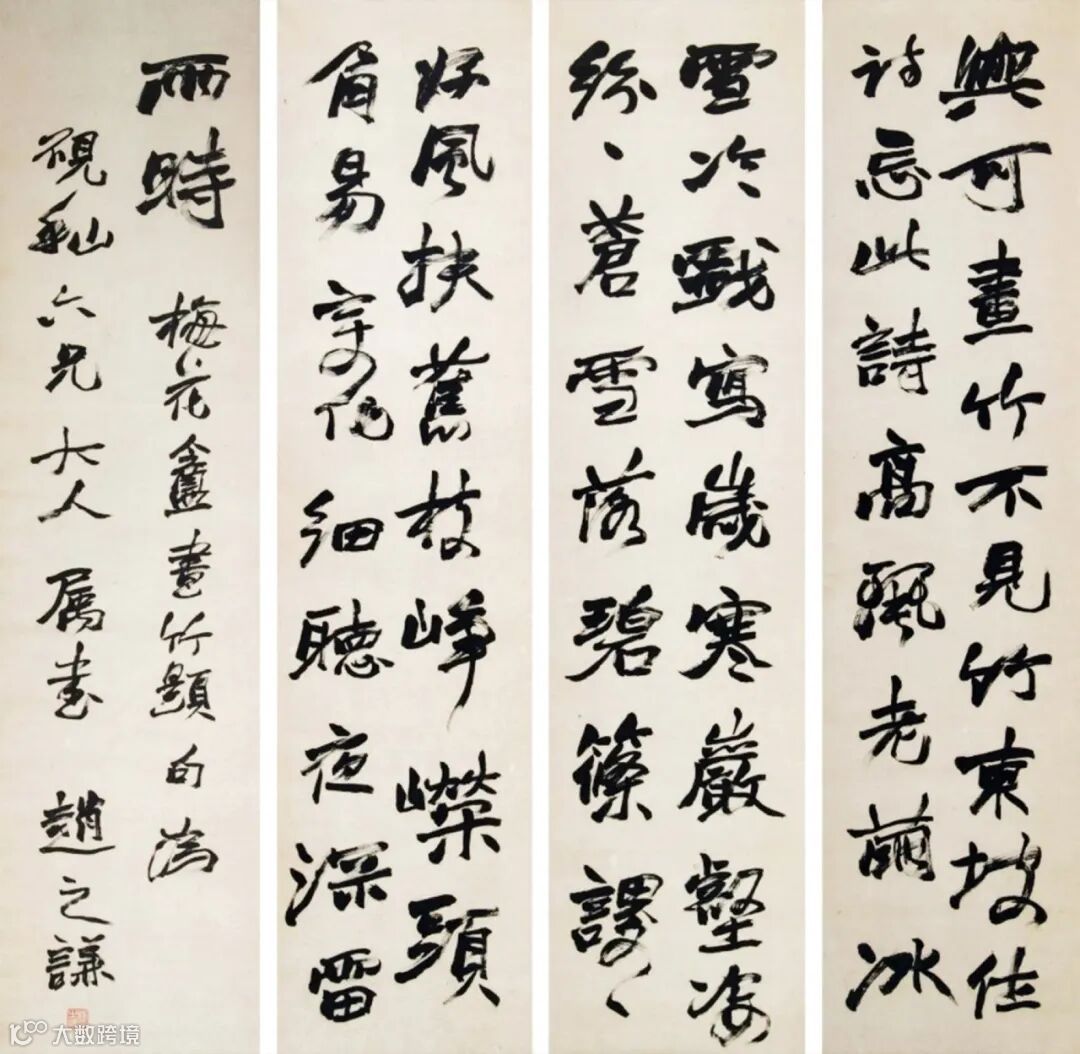 與可畫竹不見竹東坡作
詩忘此詩高老繭冰
雪冷戲寫歲寒巖壑姿
紛〻蒼雪落碧篠謖〻
好風扶舊枝崢嶸頭
角易變化細聽夜深雷
雨時 梅花盦畫竹題句為
六兄大人屬書 趙之謙
大数跨境